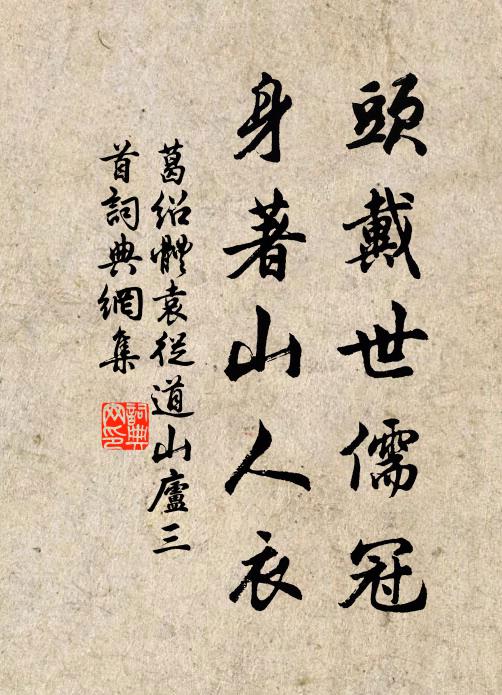 頭戴世儒冠
身著山人衣
葛紹體袁從道山廬三
首詞典網集
詞典
网印